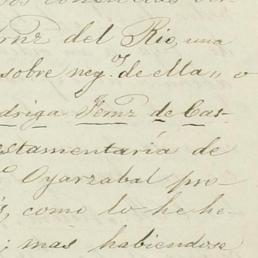 del Rio, una
sobre neg.os de ella," o
driga Fernz de Cas-
stamentaría de
Oyarzabal pro-
, como lo he he-
; mas habiendose